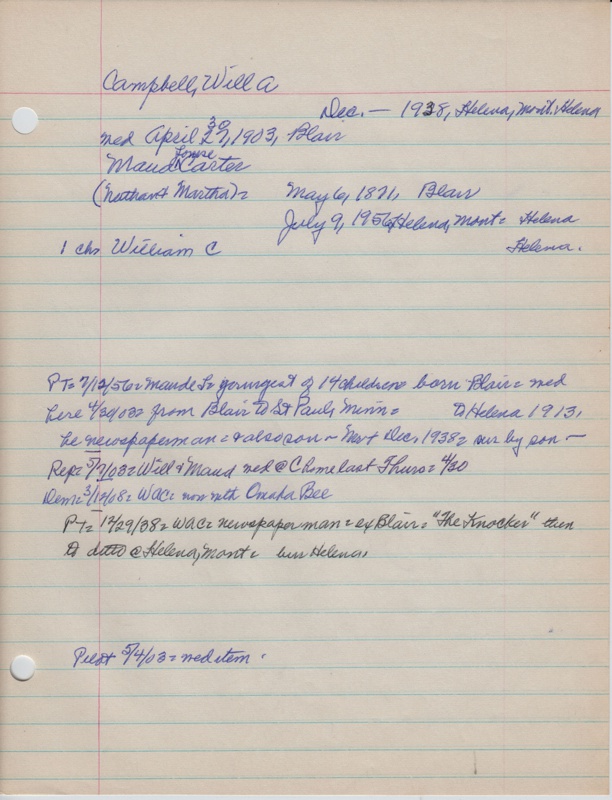 Campbell, Will A
Dec. — 1938, Helena, Mont. Helena
med April 27, 1903, Blair
30
Louise
Maud Carter
(Nathan + Martha) = May 6, 1871, Blair
July 9, 1956, Helena, Mont = Helena
1 chr William C Helena.
PT = 7/12/56 = Maude L = youngest of 14 children = born Blair = med
here 4/30/03 = from Blair to St Paul, Minn = to Helena 1913,
he newspaperman = + also son - Mont Dec, 1938 = sur by son -
Rep = 5/7/03 = Will + Maud med @ C home last Thurs = 4/30
Dem = 3/12/08 = WAC = now with Omaha Bee
PT = 12/29/38 = WAC = newspaper man = ex Blair = "The Knocker" then
to ditto @ Helena, Mont = bur Helena,
Pilot 5/4/03 = med item.